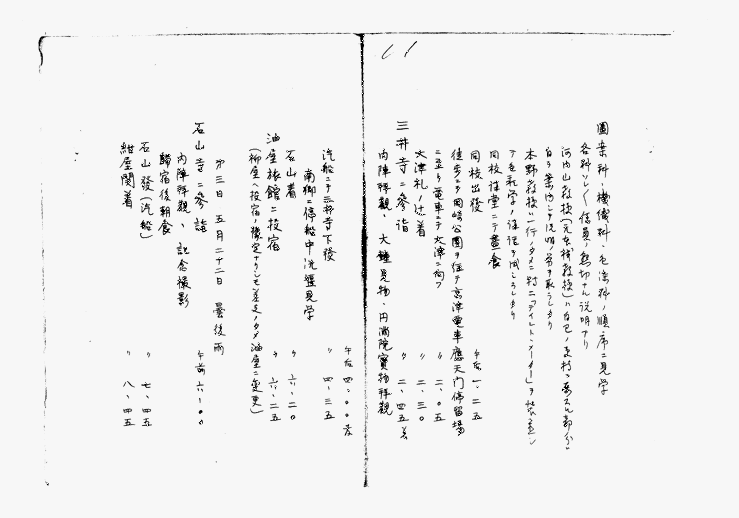 圖案科、機織科、色染科ノ順序ニ見学
各科ソレ〲係員ノ懇切ナル説明アリ
河内山教授(元本校教授)ハ自己ノ
自ラ案内シテ説明ノ労ヲ取ラレタリ
本野教授ハ一行ノタメニ特ニ「ティントメーター」ヲ装置シ
テ色彩学ノ
同校経堂ニテ晝食
同校出發 午後一、二五
徒歩ニテ岡崎公園ヲ経テ京津電車應天門停留場
ニ至リ電車ニテ大津ニ向フ 〃 二、〇五
大津札ノ辻着 〃 二、三〇
三井寺ニ參詣 〃 二、四五着
内陣拝觀、大鐘見物、円満院寳物拝觀
午后 四、〇〇発
汽船ニテ三井寺下發 〃 四、三五
南郷ニ停船中洗堰見学
石山着 〃 六、二〇
油屋旅館ニ投宿 〃 六、二五
(柳屋ヘ投宿ノ豫定ナリシモ差支ノタメ油屋ニ変更)
第三日 五月二十二日 曇後雨
石山寺ニ參詣 午前 六、〇〇
内陣拝観、記念撮影
歸宿後朝食
石山發(汽船) 〃 七、四五
紺屋関着 〃 八、四五